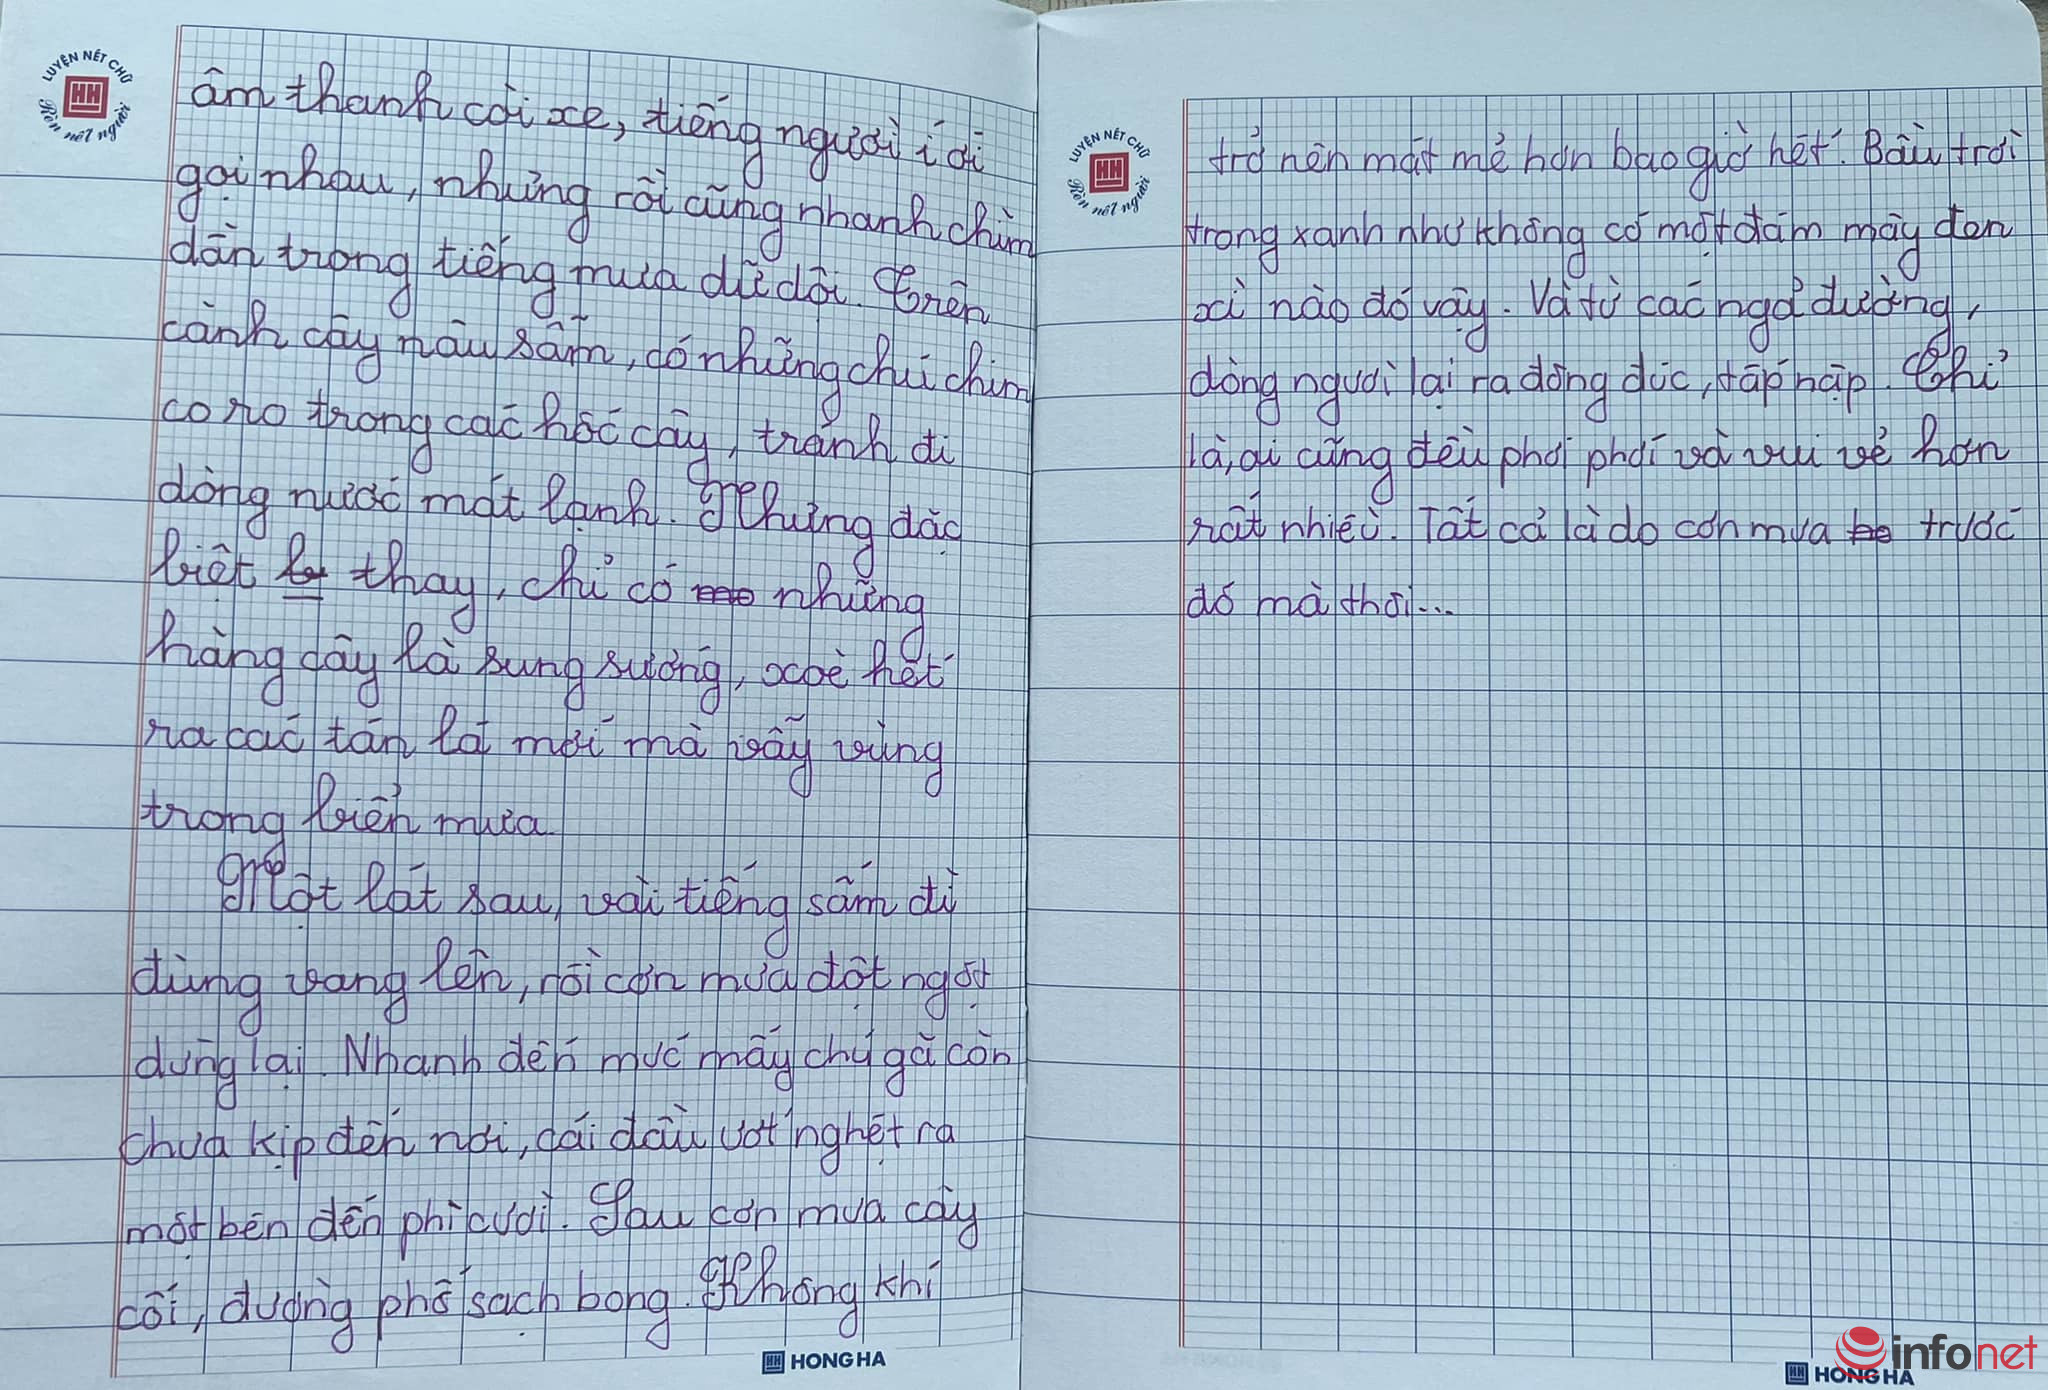 LUYỆN NẾT CHỮ
HH
Rèn nết người
âm thanh còi xe, tiếng người í ới
gọi nhau, nhưng rồi cũng nhanh chìm
dần trong tiếng mưa dữ dội. Trên
cành cây nâu sẫm, có những chú chim
co ro trong các hốc cây, tránh đi
dòng nước mát lạnh. Nhưng đặc
biệt thay, chỉ có những
hàng cây là sung sướng, xoè hết
ra các tán lá mới mà vẫy vùng
trong biển mưa.
Một lát sau, vài tiếng sấm đì
đùng vang lên, rồi cơn mưa đột ngột
dừng lại. Nhanh đến mức mấy chú gà còn
chưa kịp đến nơi, cái đầu ướt nghẹt ra
một bên đến phì cười. Sau cơn mưa cây
cối, đường phố sạch bong. Không khí
HH HONG HA
LUYỆN NẾT CHỮ
HH
Rèn nết người
trở nên mát mẻ hơn bao giờ hết. Bầu trời
trong xanh như không có một đám mây đen
xì nào đó vậy. Và từ các ngả đường,
dòng người lại ra đông đúc, tấp nập. Chỉ
là, ai cũng đều phơi phới và vui vẻ hơn
rất nhiều. Tất cả là do cơn mưa trước
đó mà thôi...
HH HONG HA
infonet